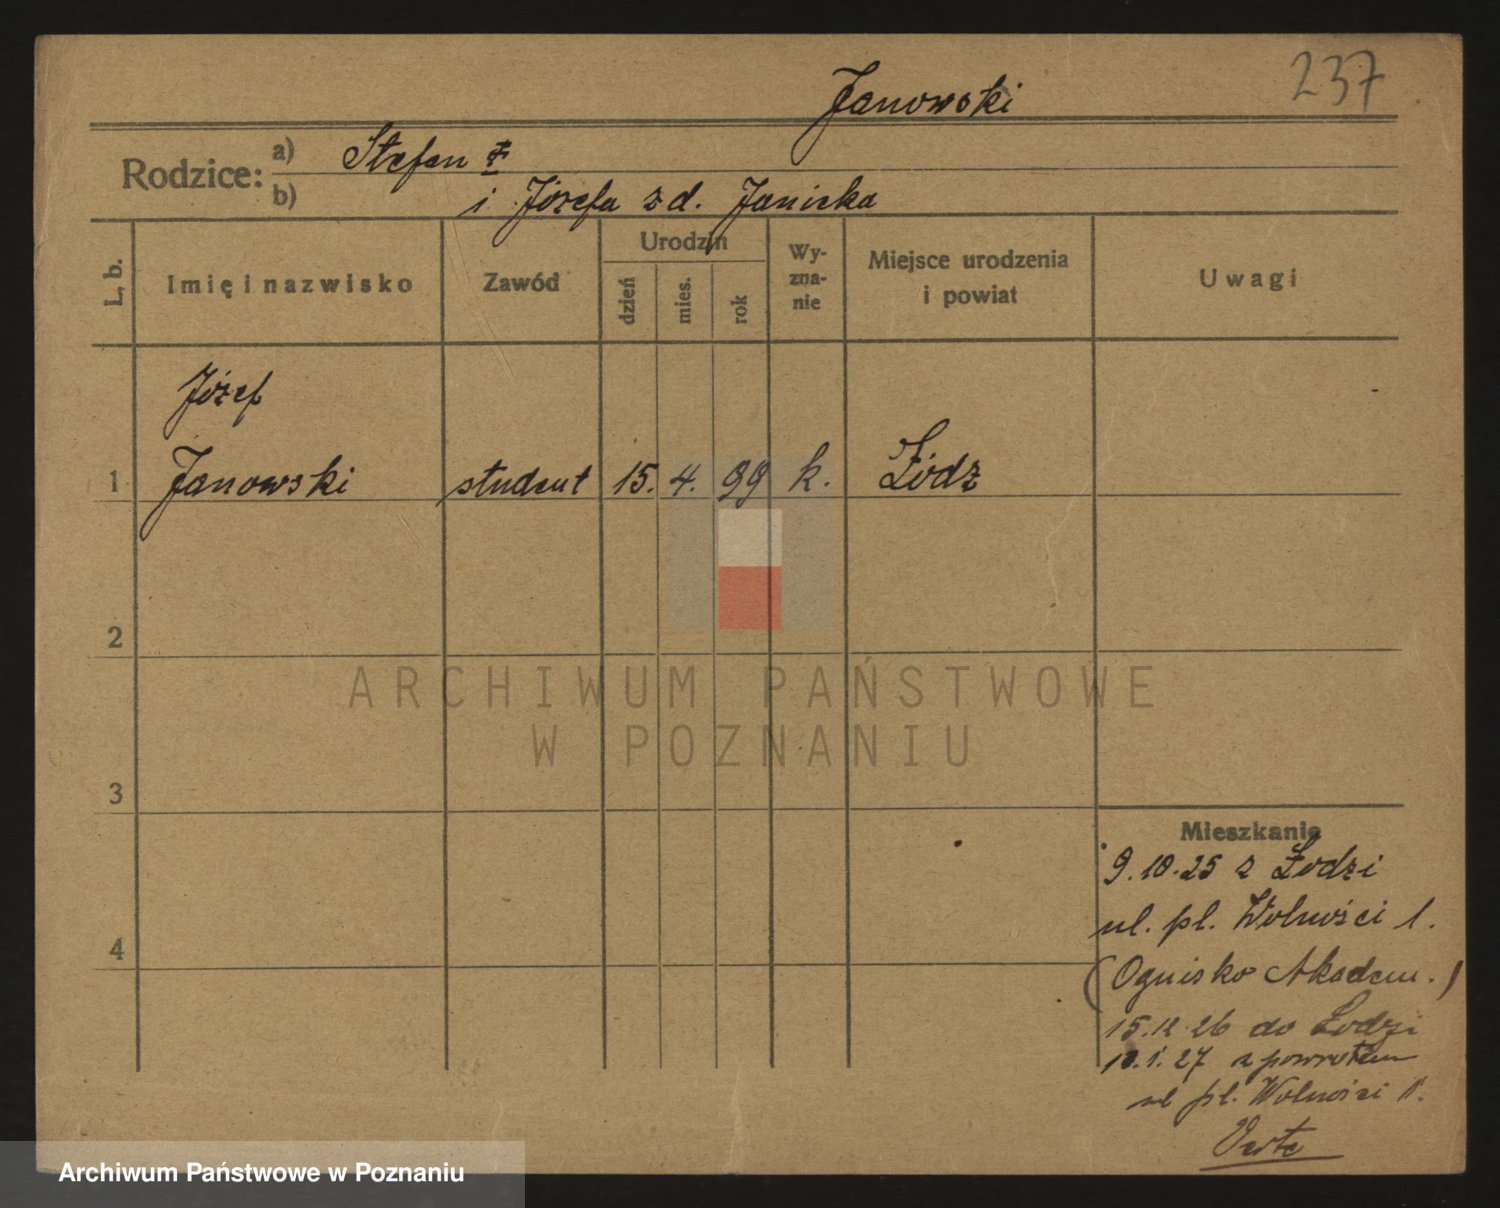 237
Janowski
Rodzice: a) Stefan ‡
b) i Józefa z d. Janicka
L. b. Imię i nazwisko Zawód Urodzin dzień mies. rok Wy-zna-nie Miejsce urodzenia i powiat Uwagi
Józef
1 Janowski student 15. 4. 99 k. Łódz
2
ARCHIWUM PAŃSTWOWE
W POZNANIU
3
Mieszkanie
9.10.25 z Łodzi
ul. pl. Wolności 1.
4
(Ognisko Akadem.)
15.12 26 do Łodzi
10.1.27 z powrotem
ul pl. Wolności 1.
Verte
Archiwum Państwowe w Poznaniu